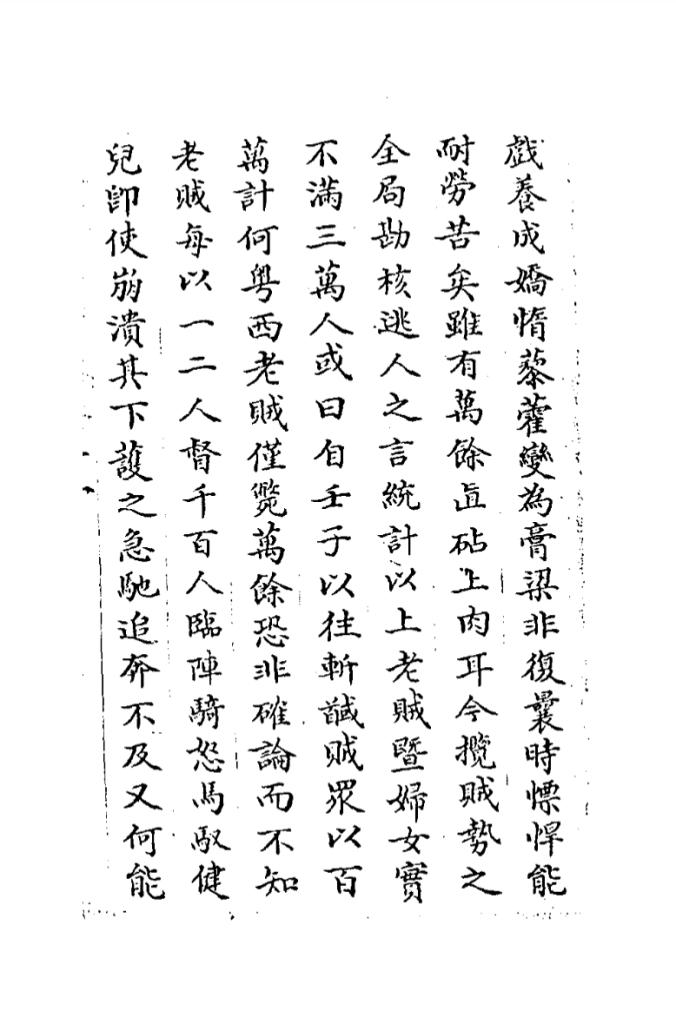 戯養成嬌惰藜藿變為膏粱非復曩時慓悍能
耐勞苦矣雖有萬餘直砧上肉耳今攬賊勢之
全局勘核逃人之言統計以上老賊暨婦女實
不滿三萬人或曰自壬子以往斬馘賊眾以百
萬計何粤西老賊僅斃萬餘恐非確論而不知
老賊每以一二人督千百人臨陣騎怒馬馭健
兒卽使崩潰其下護之急馳追奔不及又何能